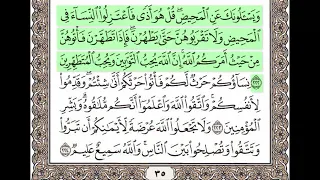 وَيَسْـَٔلُونَكَ عَنِ ٱلْمَحِيضِ ۖ قُلْ هُوَ أَذًى فَٱعْتَزِلُوا۟ ٱلنِّسَآءَ فِى
ٱلْمَحِيضِ ۖ وَلَا تَقْرَبُوهُنَّ حَتَّىٰ يَطْهُرْنَ ۖ فَإِذَا تَطَهَّرْنَ فَأْتُوهُنَّ
مِنْ حَيْثُ أَمَرَكُمُ ٱللَّهُ ۚ إِنَّ ٱللَّهَ يُحِبُّ ٱلتَّوَّٰبِينَ وَيُحِبُّ ٱلْمُتَطَهِّرِينَ
﴿٢٢٢﴾ نِسَآؤُكُمْ حَرْثٌ لَّكُمْ فَأْتُوا۟ حَرْثَكُمْ أَنَّىٰ شِئْتُمْ ۖ وَقَدِّمُوا۟
لِأَنفُسِكُمْ ۚ وَٱتَّقُوا۟ ٱللَّهَ وَٱعْلَمُوٓا۟ أَنَّكُم مُّلَٰقُوهُ ۗ وَبَشِّرِ
ٱلْمُؤْمِنِينَ ﴿٢٢٣﴾ وَلَا تَجْعَلُوا۟ ٱللَّهَ عُرْضَةً لِّأَيْمَٰنِكُمْ أَن تَبَرُّوا۟
وَتَتَّقُوا۟ وَتُصْلِحُوا۟ بَيْنَ ٱلنَّاسِ ۗ وَٱللَّهُ سَمِيعٌ عَلِيمٌ ﴿٢٢٤﴾
٣٥